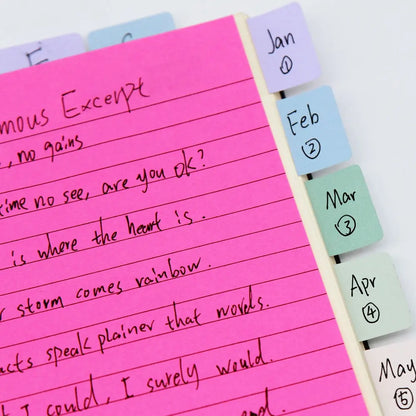 E
mous Excerpt
, no gains
time no see, are you ok?
is where the heart is.
r storm comes rainbow.
acts speak plainer that words.
I could, I surely would.
Jan
①
Feb
②
Mar
③
Apr
④
May
⑤